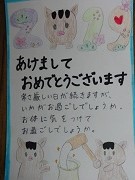 2019
あけまして
おめでとうございます
寒さ厳しい日が続きますが、
いかがお過ごしでしょうか。
お体に気をつけて
お過ごしでしょうか。